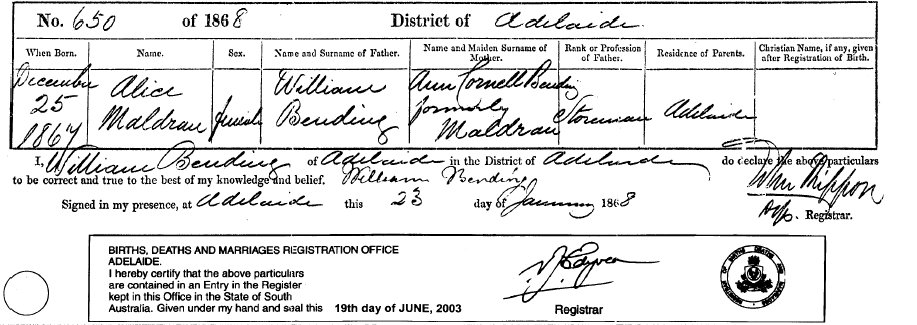 No. 650 of 1868 District of Adelaide
When Born. Name. Sex. Name and Surname of Father. Name and Maiden Surname of Mother. Rank or Profession of Father. Residence of Parents. Christian Name, if any, given after Registration of Birth.
December William Ann Cornell Bending
25 Alice formerly
1867 Maldrau female Bending Maldrau Storeman Adelaide
I, William Bending of Adelaide in the District of Adelaide do declare the above particulars
to be correct and true to the best of my knowledge and belief. William Bending
Signed in my presence, at Adelaide this 23 day of January 1868
Dep. Registrar.
BIRTHS, DEATHS AND MARRIAGES REGISTRATION OFFICE
ADELAIDE.
I hereby certify that the above particulars
are contained in an Entry in the Register
kept in this Office in the State of South
Australia. Given under my hand and seal this 19th day of JUNE, 2003
Registrar